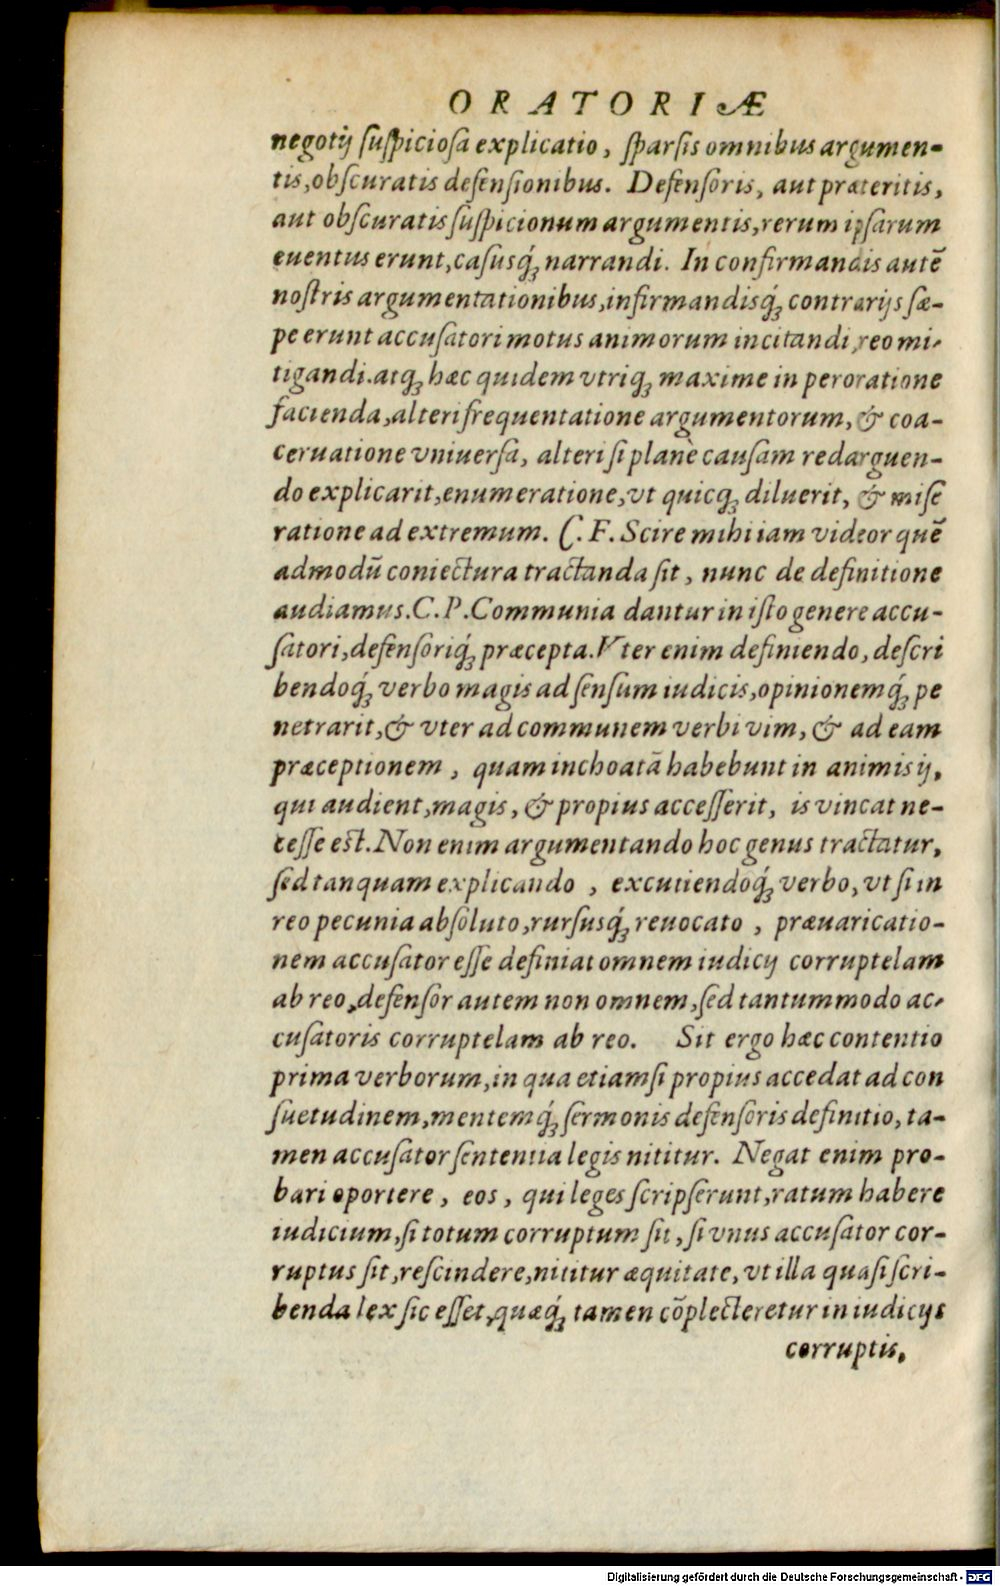 ORATORIÆ
negotij ſuſpicioſa explicatio, ſparſis omnibus argumen-
tis, obſcuratis defenſionibus. Defenſoris, aut præteritis,
aut obſcuratis ſuſpicionum argumentis, rerum ipſarum
euentus erunt, caſusq́ꝫ narrandi. In confirmandis autē
noſtris argumentationibus, infirmandisq́ꝫ contrarijs ſæ-
pe erunt accuſatori motus animorum incitandi, reo mi-
tigandi. atqꝫ hæc quidem vtriqꝫ maxime in peroratione
facienda, alteri frequentatione argumentorum, & coa-
ceruatione vniuerſa, alteri ſi planè cauſam redarguen-
do explicarit, enumeratione, vt quicqꝫ diluerit, & miſe
ratione ad extremum. C. F. Scire mihi iam videor quē
admodū coniectura tractanda ſit, nunc de definitione
audiamus. C. P. Communia dantur in iſto genere accu-
ſatori, defenſoriq́ꝫ præcepta. Vter enim definiendo, deſcri
bendoq́ꝫ verbo magis ad ſenſum iudicis, opinionemq́ꝫ pe
netrarit, & vter ad communem verbi vim, & ad eam
præceptionem, quam inchoatā habebunt in animis ij,
qui audient, magis, & propius acceſſerit, is vincat ne-
ceſſe est. Non enim argumentando hoc genus tractatur,
ſed tanquam explicando, excutiendoq́ꝫ verbo, vt ſi in
reo pecunia abſoluto, rurſusq́ꝫ reuocato, præuaricatio-
nem accuſator eſſe definiat omnem iudicij corruptelam
ab reo, defenſor autem non omnem, ſed tantummodo ac-
cuſatoris corruptelam ab reo. Sit ergo hæc contentio
prima verborum, in qua etiamſi propius accedat ad con
ſuetudinem, mentemq́ꝫ ſermonis defenſoris definitio, ta-
men accuſator ſententia legis nititur. Negat enim pro-
bari oportere, eos, qui leges ſcripſerunt, ratum habere
iudicium, ſi totum corruptum ſit, ſi vnus accuſator cor-
ruptus ſit, reſcindere, nititur æquitate, vt illa quaſi ſcri-
benda lex ſic eſſet, quæq́ꝫ tamen cōplecteretur in iudicijs
corruptis,
Digitalisierung gefördert durch die Deutsche Forschungsgemeinschaft - DFG